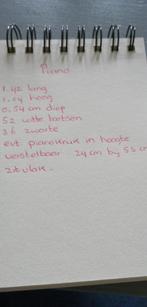 Piano
1.42 lang
1.04 hoog
0.54 cm diep
52 witte toetsen
36 zwarte
evt. pianokruk in hoogte
verstelbaar 34 cm by 55 cm
zitvlak.